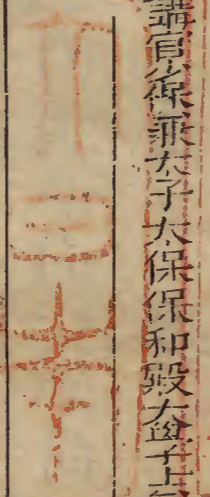 講官少保兼太子太保保和殿大學士